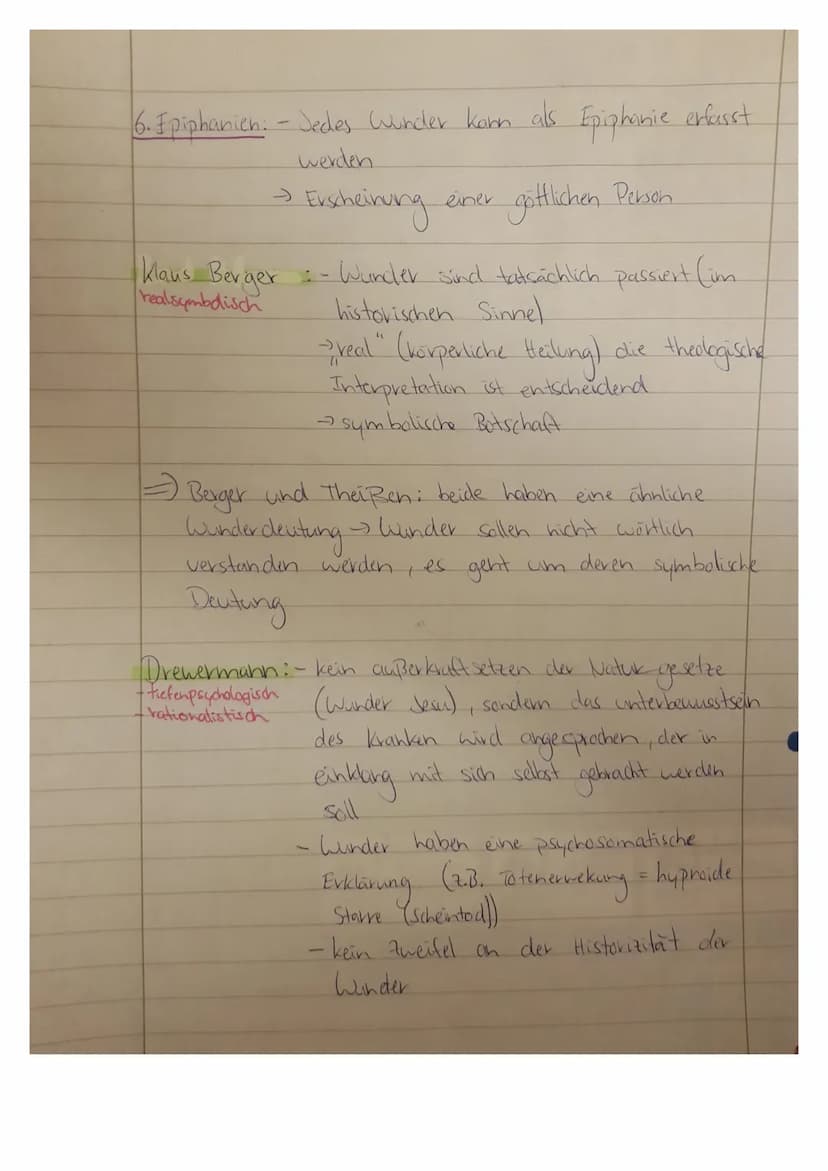 6. Epiphanien: - Jedes Wunder kann als Epiphanie erfasst
werden
→ Erscheinung einer göttlichen Person
Klaus Berger : - Wunder sind tatsächlich passiert (im
realsymbolisch
historischen Sinne)
→ „real" (körperliche Heilung) die theologische
Interpretation ist entscheidend
→ symbolische Botschaft
⇒ Berger und Theißen: beide haben eine ähnliche
Wunderdeutung → Wunder sollen nicht wörtlich
verstanden werden, es geht um deren symbolische
Deutung
Drewermann: - kein außerkraftsetzen der Naturgesetze
- tiefenpsychologisch
(Wunder Jesu), sondern das unterbewusstsein
- rationalistisch
des Kranken wird angesprochen, der in
einklang mit sich selbst gebracht werden
soll
- Wunder haben eine psychosomatische
Erklärung (z.B. Totenerwekung = hypnoide
Starre (scheintod))
- kein Zweifel an der Historizität der
Wunder